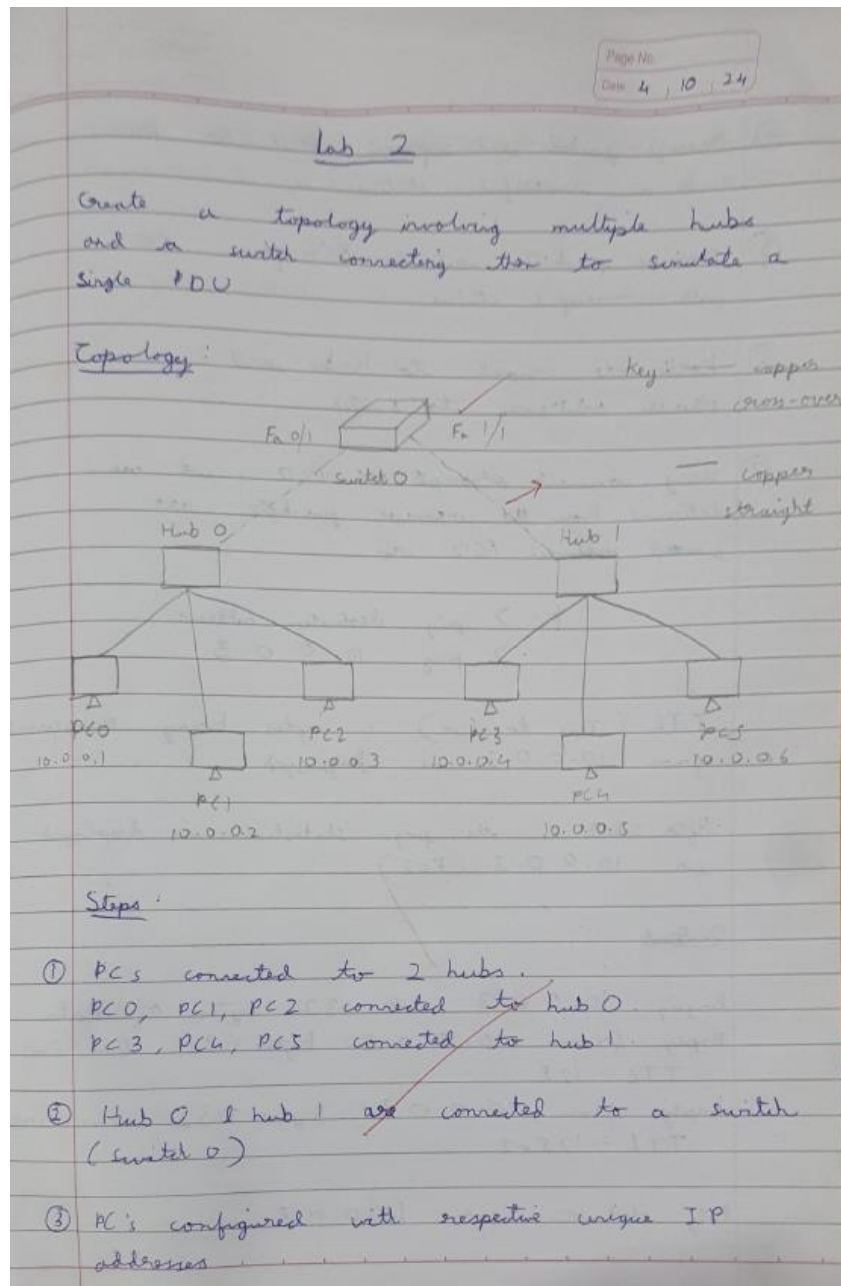 Page No
Date 4 10 24
Lab 2
Create a topology involving multiple hubs
and a switch connecting them to simulate a
single PDU
Topology:
Key: --- copper
cross-over
Fa 0/1
Fa 1/1
switch 0
— copper
straight
Hub 0
Hub 1
PC0
PC2
PC3
PC5
10.0.0.1
10.0.0.3
10.0.0.4
10.0.0.6
PC1
PC4
10.0.0.2
10.0.0.5
Steps:
① PCs connected to 2 hubs.
PC0, PC1, PC2 connected to hub 0
PC3, PC4, PC5 connected to hub 1
② Hub 0 & hub 1 are connected to a switch
(switch 0)
③ PC's configured with respective unique IP
addresses